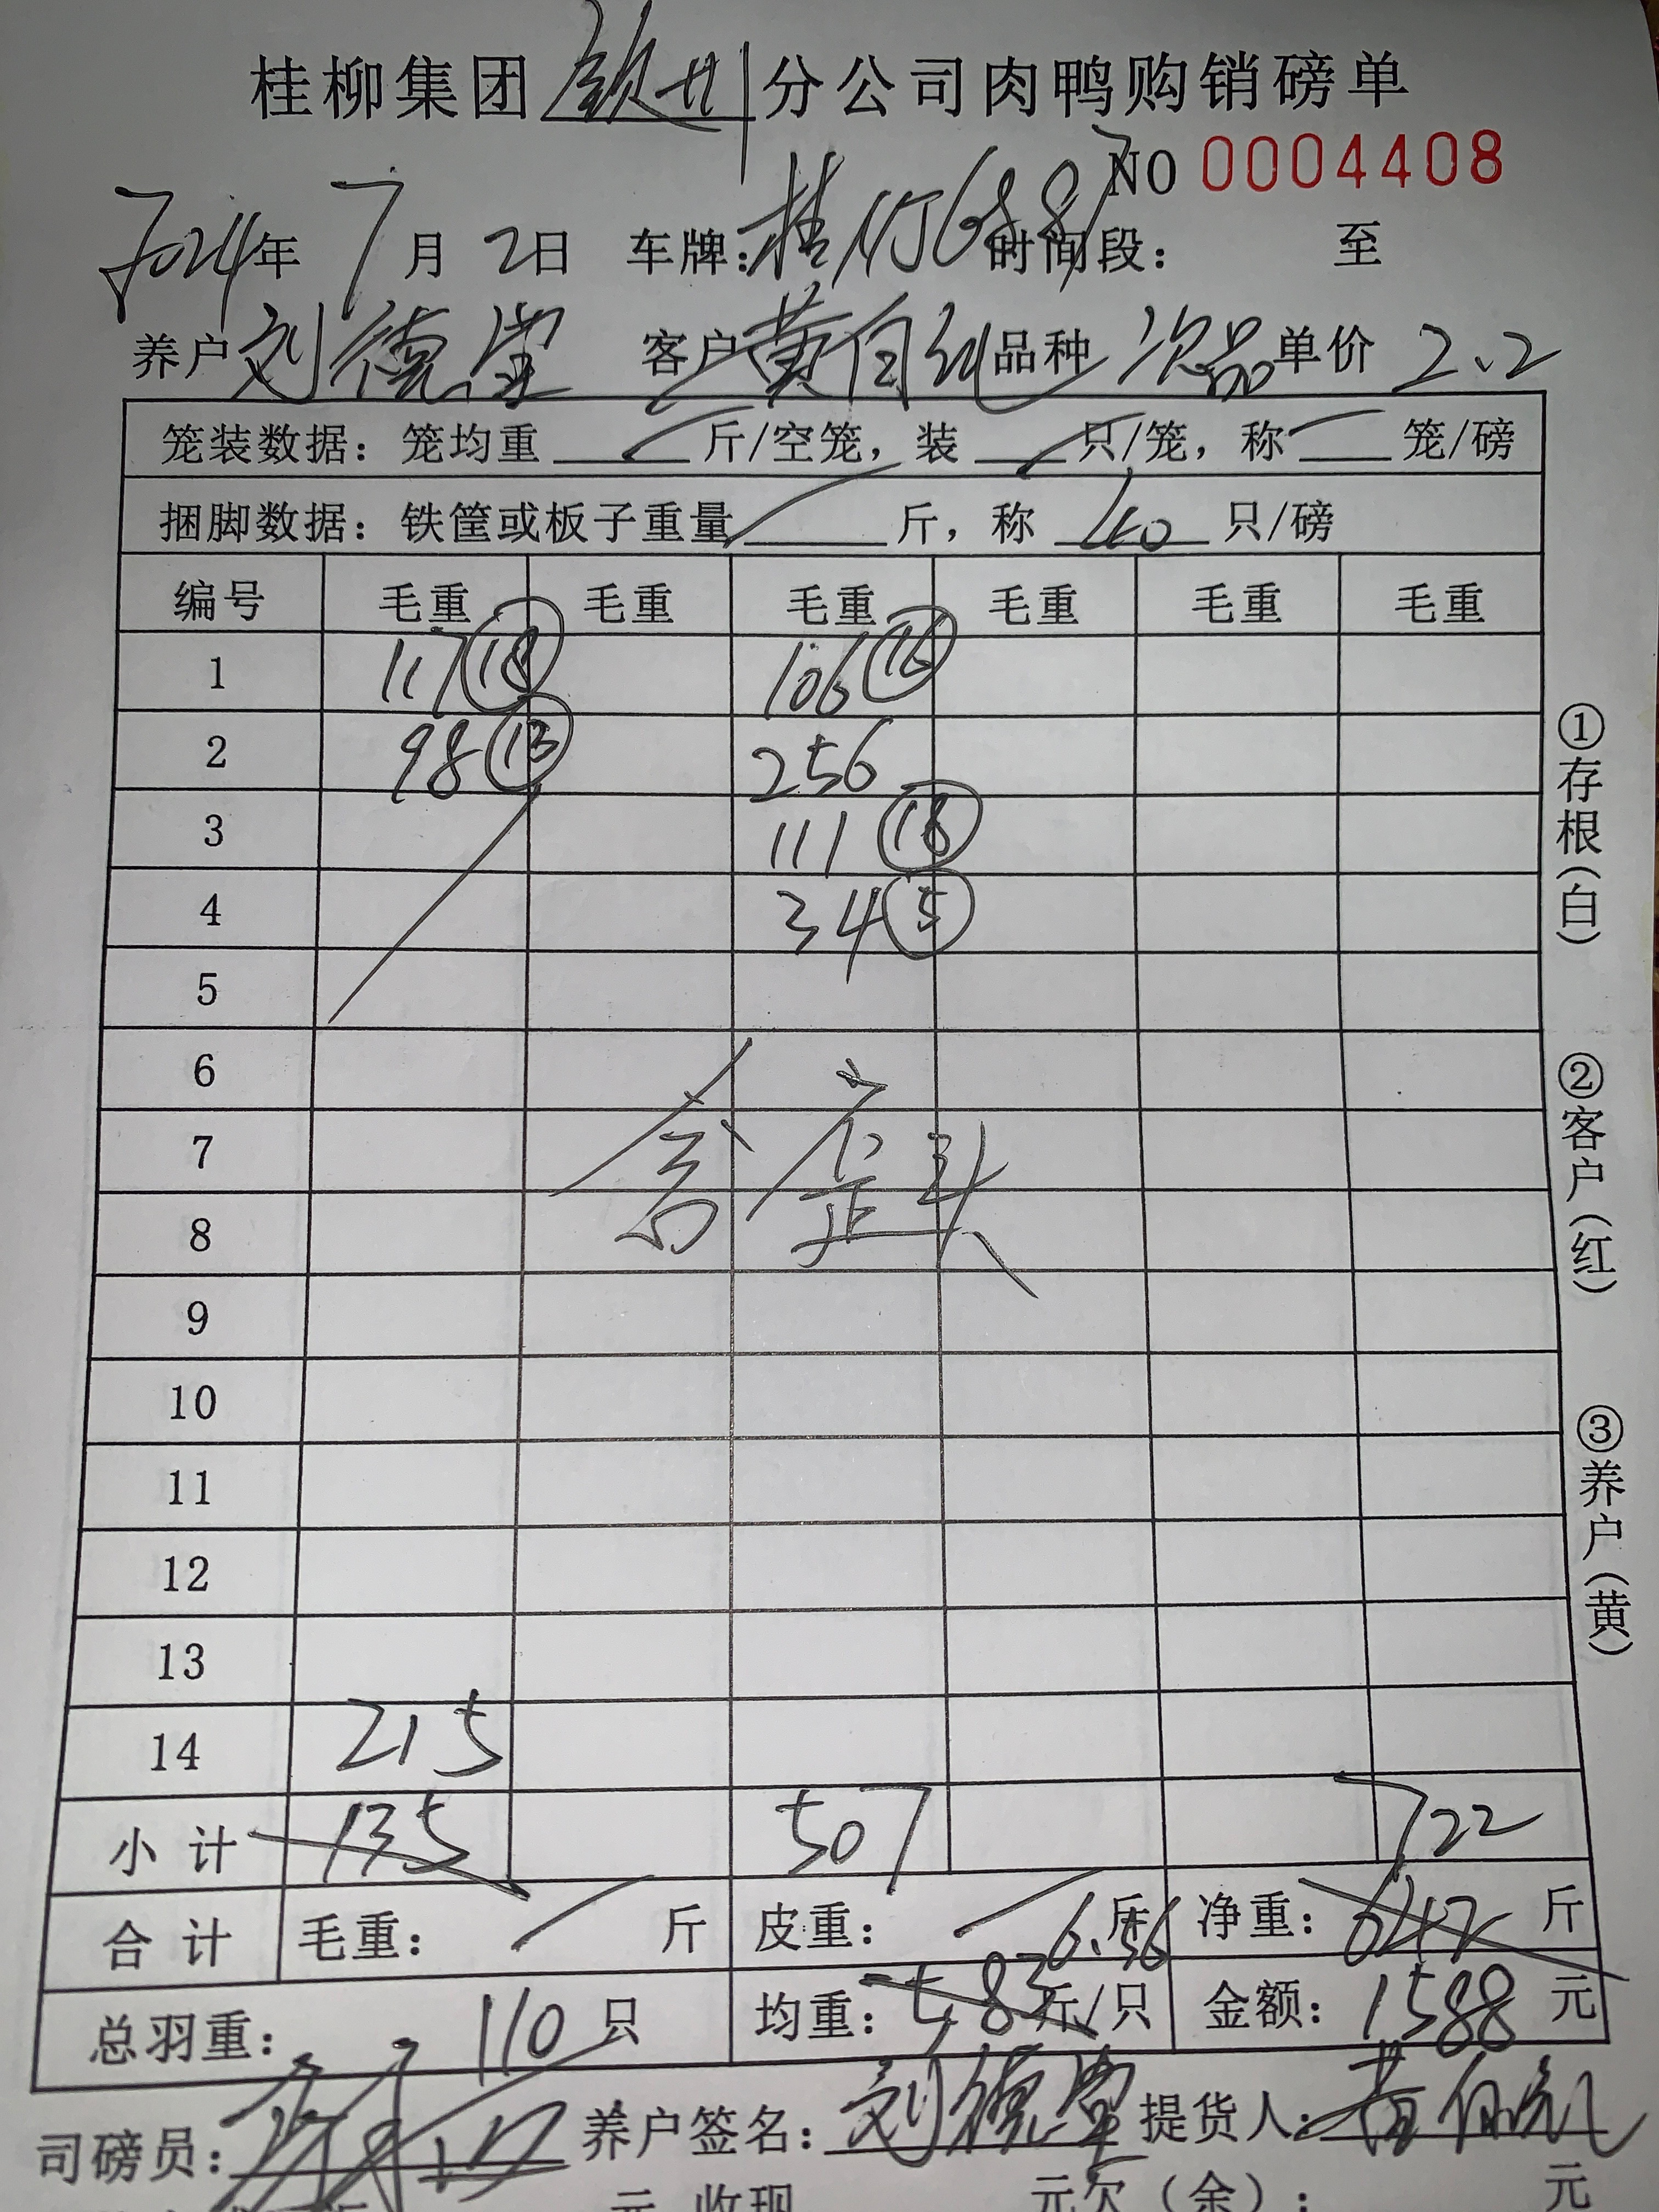 桂柳集团钦州分公司肉鸭购销磅单
NO 0004408
2024年 7月 2日 车牌:桂 时间段: 至
养户 刘德堂 客户 黄自 品种 次品 单价 2.2
笼装数据: 笼均重 斤/空笼, 装 只/笼, 称 笼/磅
捆脚数据: 铁筐或板子重量 斤, 称 40 只/磅
编号 毛重 毛重 毛重 毛重 毛重 毛重
1 117 ⑱ 106 ⑯
2 98 ⑬ 256
3 111 ⑱
4 34 ⑤
5
6
7
8
含歪头
9
10
11
12
13
14 215
小计 135 507 722
合计 毛重: 斤 皮重: 斤 净重: 642 斤
6.56
总羽重: 110 只 均重: 5.83 斤/只 金额: 1588 元
司磅员: 养户签名: 刘德堂 提货人: 黄自
元 收现 元欠(余): 元
①存根(白)
②客户(红)
③养户(黄)